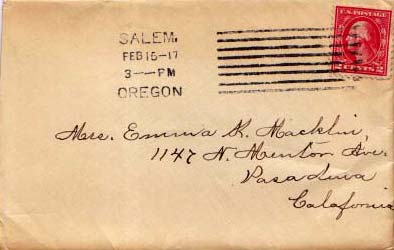 SALEM,
FEB 15-17
3--PM
OREGON
U.S. POSTAGE
2 CENTS 2
Mrs. Emma K. Macklin,
1147 N. Mentor Ave.
Pasadena
Calafornia